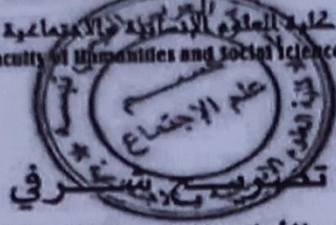 كلية العلوم الإنسانية والاجتماعية
Faculty of Humanities and Social Science
قسم
علم الإجتماع
كلية العلوم
تصريح شرفي